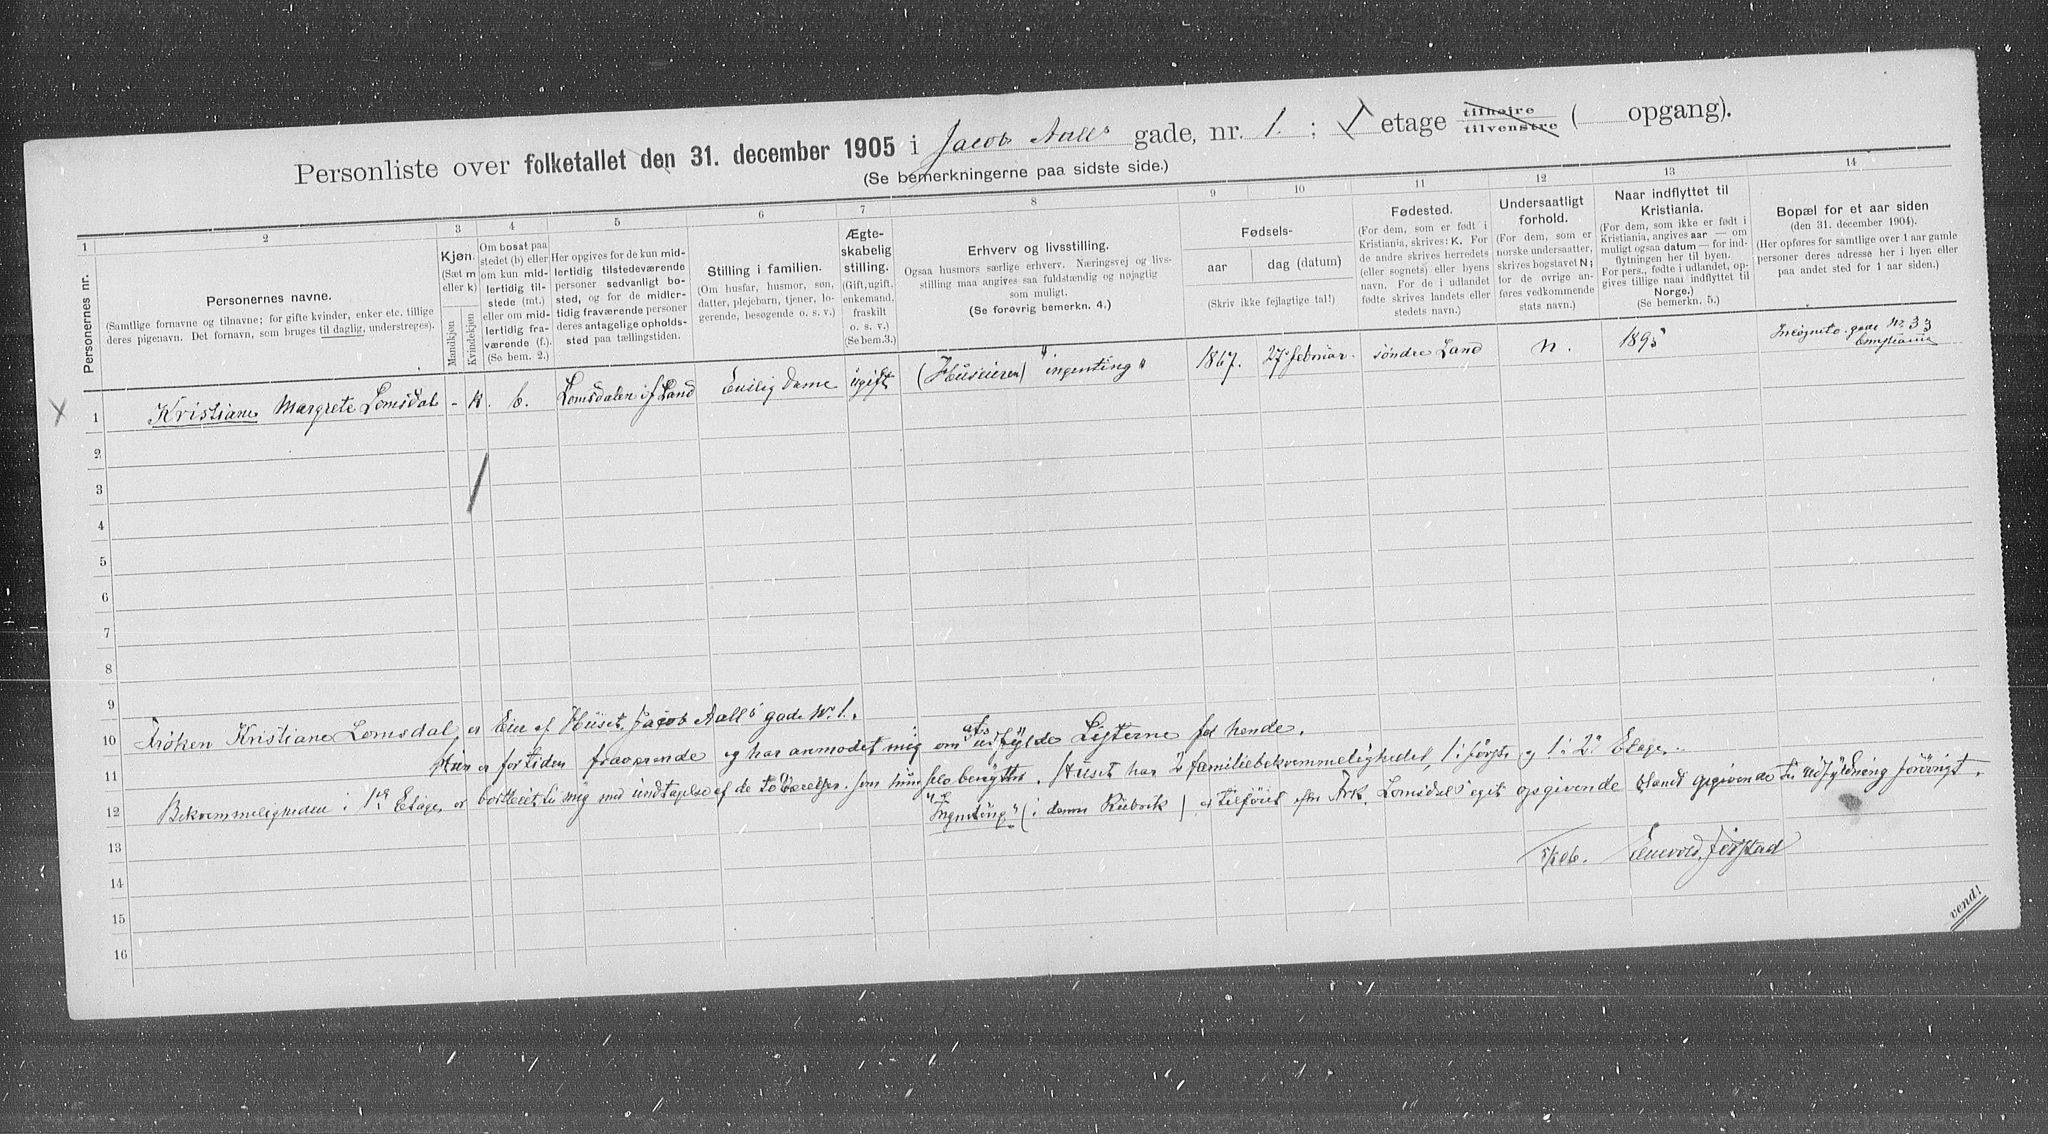 Personliste over folketallet den 31. december 1905 i Jacob Aalls gade, nr. 1. ; I etage tilhøire tilvenstre ( opgang).
(Se bemerkningerne paa sidste side.)
1 2 3 4 5 6 7 8 9 10 11 12 13 14
Personernes nr.
Personernes navne.
(Samtlige fornavne og tilnavne; for gifte kvinder, enker etc. tillige
deres pigenavn. Det fornavn, som bruges til daglig, understreges).
Kjøn.
(Sæt m
eller k)
Mandkjøn
Kvindekjøn
Om bosat paa
stedet (b) eller
om kun mid-
lertidig til-
stede (mt.)
eller om mid-
lertidig fra-
værende (f.)
(Se bem. 2.)
Her opgives for de kun mid-
lertidig tilstedeværende
personer sedvanligt bo-
sted, og for de midler-
tidig fraværende personer
deres antagelige opholds-
sted paa tællingstiden.
Stilling i familien.
(Om husfar, husmor, søn,
datter, plejebarn, tjener, lo-
gerende, besøgende o. s. v.)
Ægte-
skabelig
stilling.
(Gift, ugift,
enkemand,
fraskilt
o. s. v.)
(Se bem.3.)
Erhverv og livsstilling.
Ogsaa husmors særlige erhverv. Næringsvej og livs-
stilling maa angives saa fuldstændig og nøjagtig
som muligt.
(Se forøvrig bemerkn. 4.)
Fødsels-
aar
dag (datum)
(Skriv ikke fejlagtige tal!)
Fødested.
(For dem, som er født i
Kristiania, skrives: K. For
de andre skrives herredets
(eller sognets) eller byens
navn. For de i udlandet
fødte skrives landets eller
stedets navn.)
Undersaatligt
forhold.
(For dem, som er
norske undersaatter,
skrives bogstavet N;
for de øvrige an-
føres vedkommende
stats navn.)
Naar indflyttet til
Kristiania.
(For dem, som ikke er født i
Kristiania, angives aar — om
muligt ogsaa datum — for ind-
flytningen her til byen.
For pers., fødte i udlandet, op-
gives tillige naar indflyttet til
Norge.)
(Se bemerkn. 5.)
Bopæl for et aar siden
(den 31. december 1904).
(Her opføres for samtlige over 1 aar gamle
personer deres adresse her i byen eller
paa andet sted for 1 aar siden.)
X 1 Kristiane Margrete Lomsdal - k. b. Lomsdalen i S. Land Enslig Dame ugift (Huseieren) "ingenting" 1867. 27 Februar. søndre Land N. 1895 Incognito gade N. 33
2
3
4
5
6
7
8
9
10 Frøken Kristiane Lomsdal er Eier af Huset, Jacob Aall's gade No. 1.
11 Hun er for tiden fraværende og har anmodet mig om at udfylde Listerne for hende.
Huset har 2 familiebekvemmeligheder, 1 i første og 1 i 2den Etage.
12 Bekvemmeligheden i 1ste Etage er bortleiet til mig med undtagelse af de to Værelser, som hun selv benytter.
"Ingenting" (i denne Rubrik) er tilføiet efter Frk. Lomsdals eget opgivende
13
5/1 06.
14
15
16
vend!